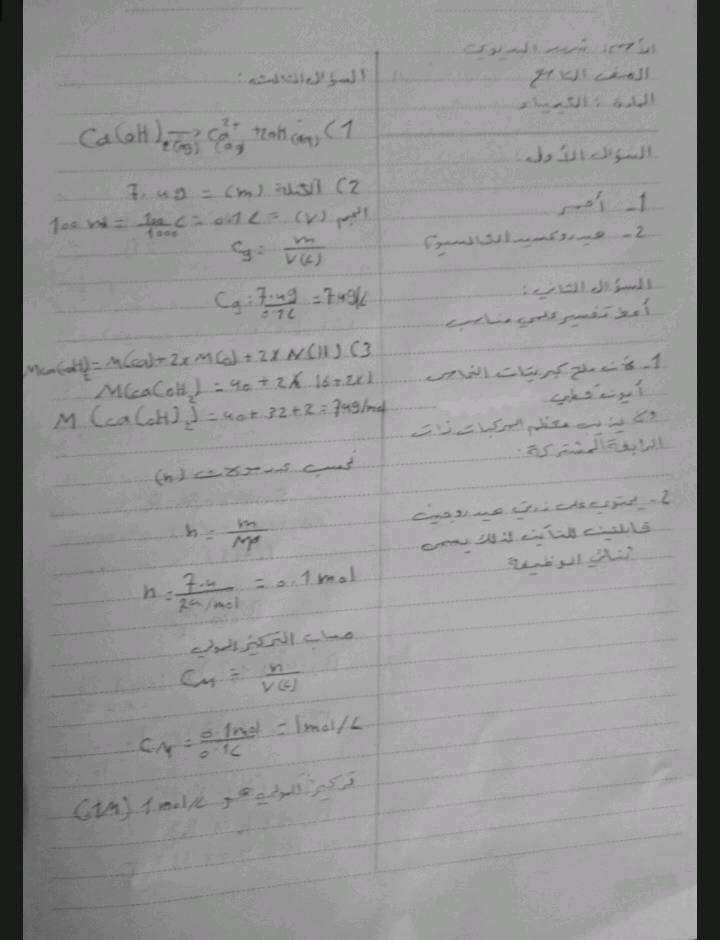 الصف التاسع
المادة : الكيمياء
السؤال الأول:
1- أحمر
2- هيدروكسيد الكالسيوم
السؤال الثاني:
أعط تفسير علمي مناسب
1- لأن ملح كبريتات النحاس
أيونه قطبي
ولا يذيب معظم المركبات ذات
الرابطة المشتركة.
2- يحتوي على ذرتي هيدروجين
قابلتين للتأين لذلك يسمى
ثنائي الوظيفة
السؤال الثالث:
Ca(OH)2(aq) → Ca2+(aq) + 2OH-(aq) (1
2) الكتلة (m) = 7.4g
الحجم (V) = 0.1L = 100/1000 L = 100 ml
Cg = m/V(L)
Cg = 7.4g/0.1L = 74g/L
3) M(Ca(OH)2) = M(Ca) + 2×M(O) + 2×M(H)
M(Ca(OH)2) = 40 + 2×16 + 2×1
M(Ca(OH)2) = 40 + 32 + 2 = 74g/mol
نحسب عدد مولات (n)
n = m/M
n = 7.4/74g/mol = 0.1mol
حساب التركيز المولي
CM = n/V(L)
CM = 0.1mol/0.1L = 1mol/L
تركيز المولي هو 1mol/L (1M)